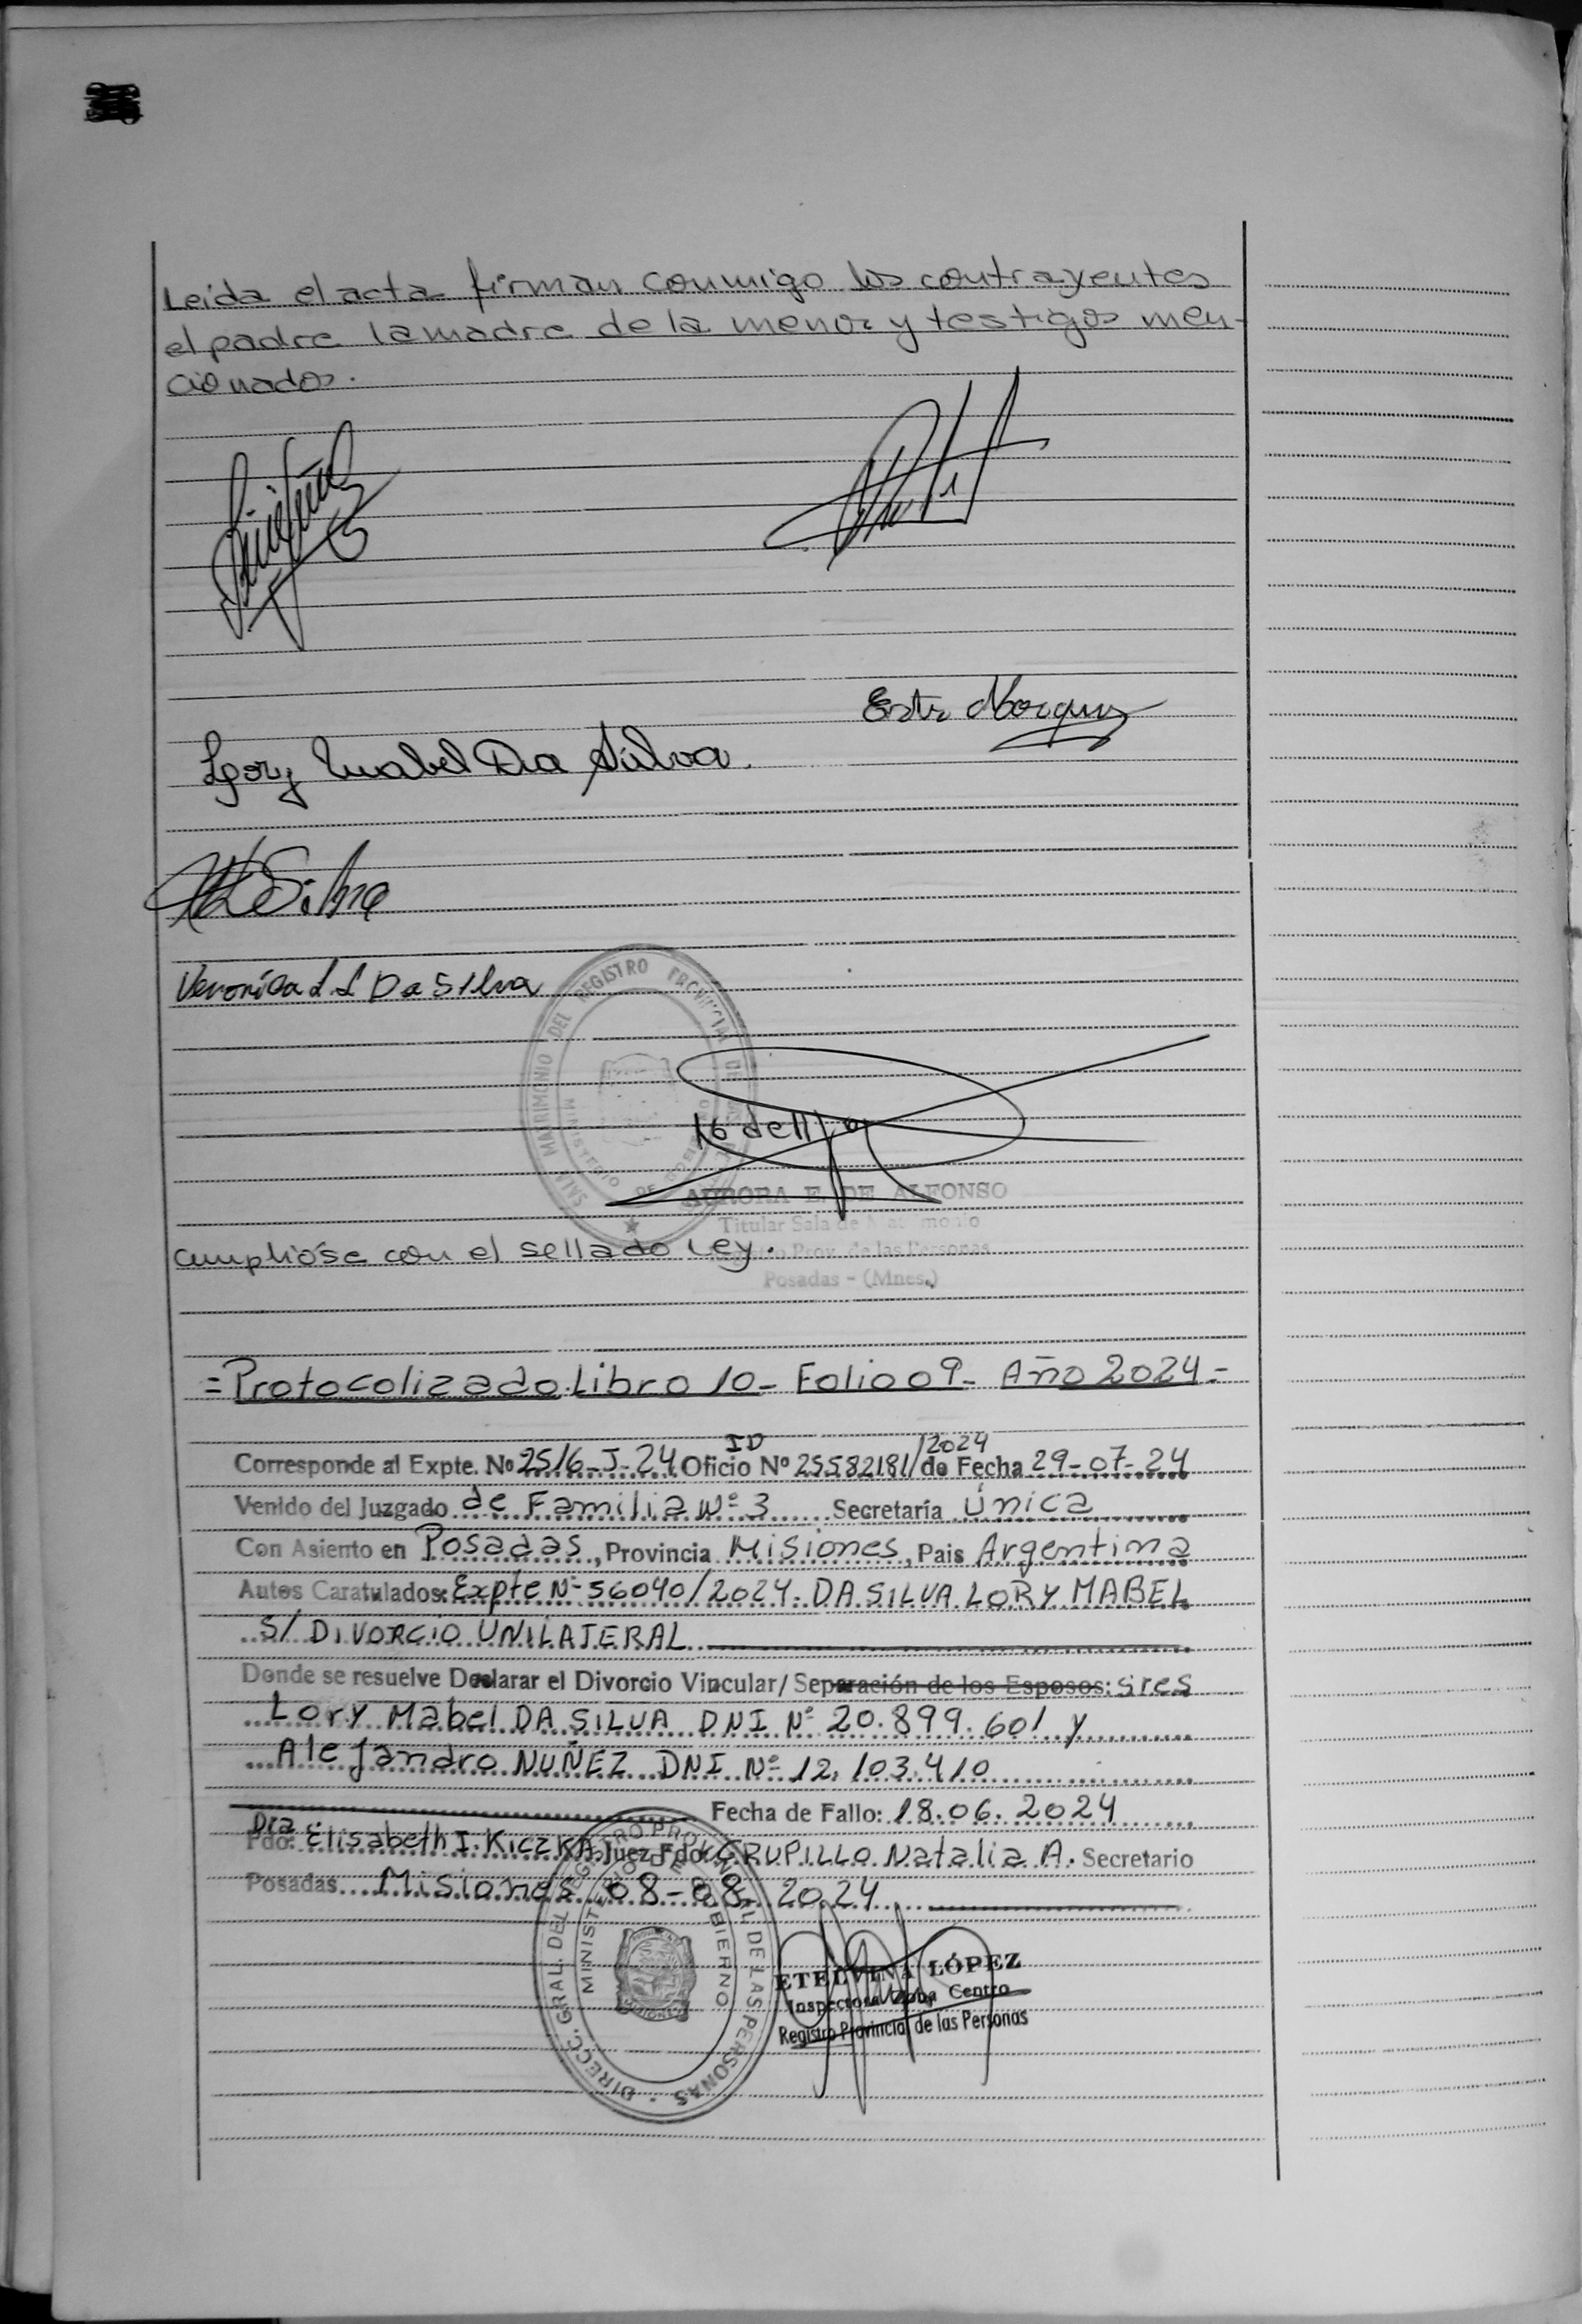 Leída el acta firman conmigo los contrayentes
el padre la madre de la menor y testigos men-
cionados.
Lory Mabel Da Silva
Da Silva
SALA MATRIMONIO DEL REGISTRO PROVINCIAL DE
MINISTERIO DE GOBIERNO
AURORA E. DE ALFONSO
Titular Sala de Matrimonio
Prov. de las Personas
cumplióse con el sellado Ley.
Posadas - (Mnes.)
= Protocolizado Libro 10 - Folio 09 - Año 2024 =
Corresponde al Expte. No 2516-J-24 Oficio ID Nº 25582181/2024 de Fecha 29-07-24
Venido del Juzgado de Familia Nº 3 Secretaría Única
Con Asiento en Posadas, Provincia Misiones, Pais Argentina
Autos Caratulados: Expte Nº 56040/2024. DA SILVA LORY MABEL
S/ DIVORCIO UNILATERAL
Donde se resuelve Declarar el Divorcio Vincular/ Separación de los Esposos: sres
Lory Mabel DA SILVA DNI Nº 20.899.601 y
Alejandro NUÑEZ DNI Nº 12.103.410
Fecha de Fallo: 18.06.2024
Fdo: Dra. Elisabeth I. KICZKA Juez Fdo: CRUPILLO Natalia A. Secretario
Posadas Misiones 08-08-2024
DIRECC. GRAL. DEL REGISTRO PROVINCIAL DE LAS PERSONAS
MINISTERIO DE GOBIERNO
ETELVINA LÓPEZ
Inspectora Zona Centro
Registro Provincial de las Personas